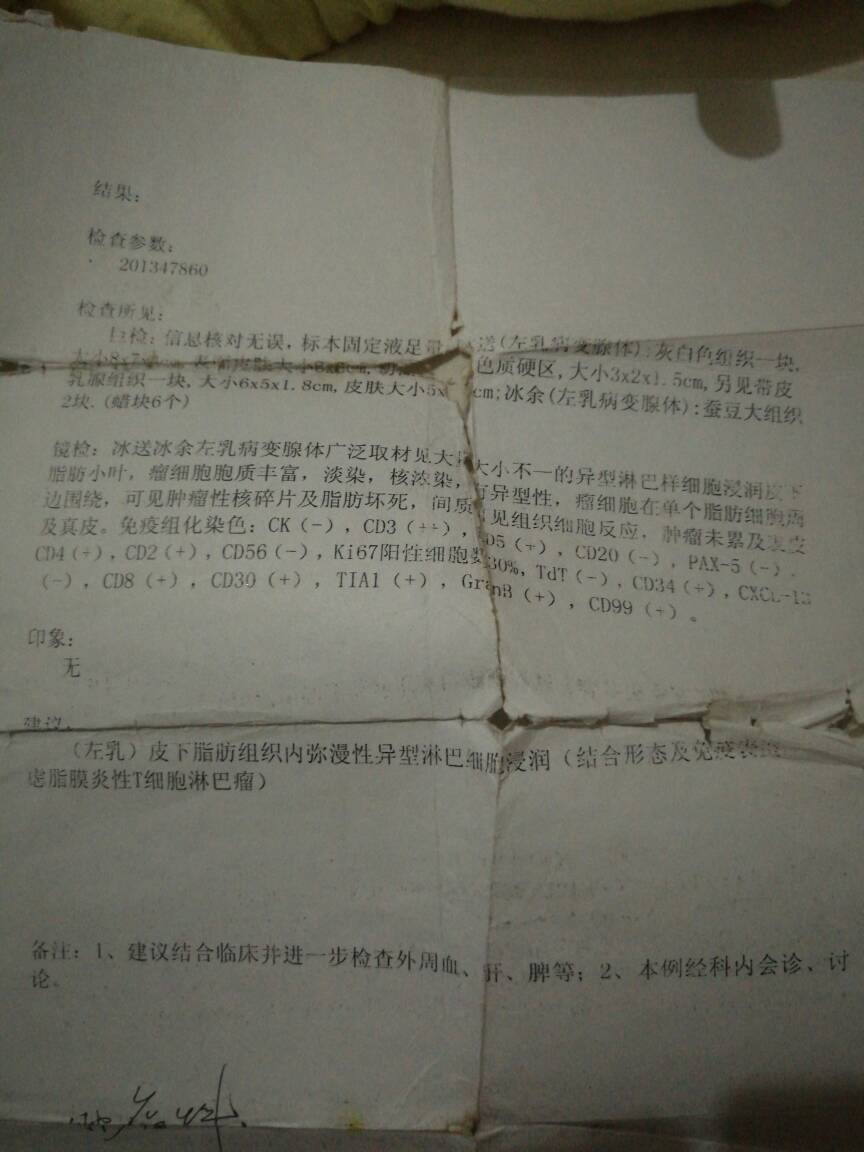 结果：
检查参数：
201347860
检查所见：
巨检：信息核对无误，标本固定液足 送(左乳病变腺体):灰白色组织一块，
大小8x7 cm，表面皮肤大小 色质硬区，大小3x2x1.5cm，另见带皮
乳腺组织一块，大小6x5x1.8cm，皮肤大小5x cm;冰余(左乳病变腺体):蚕豆大组织
2块.(蜡块6个)
镜检：冰送冰余左乳病变腺体广泛取材见大 大小不一的异型淋巴样细胞浸润皮下
脂肪小叶，瘤细胞胞质丰富，淡染，核浓染，有异型性，瘤细胞在单个脂肪细胞周
边围绕，可见肿瘤性核碎片及脂肪坏死，间质 见组织细胞反应，肿瘤未累及表皮
及真皮。免疫组化染色：CK（-），CD3（++），CD5（+），CD20（-），PAX-5（-），
CD4（+），CD2（+），CD56（-），Ki67阳性细胞数30%，TdT（-），CD34（+），CXCL-13
（-），CD8（+），CD30（+），TIA1（+），GranB（+），CD99（+）。
印象：
无
建议：
（左乳）皮下脂肪组织内弥漫性异型淋巴细胞浸润（结合形态及免疫表
虑脂膜炎性T细胞淋巴瘤）
备注：1、建议结合临床并进一步检查外周血、肝、脾等；2、本例经科内会诊、讨
论。